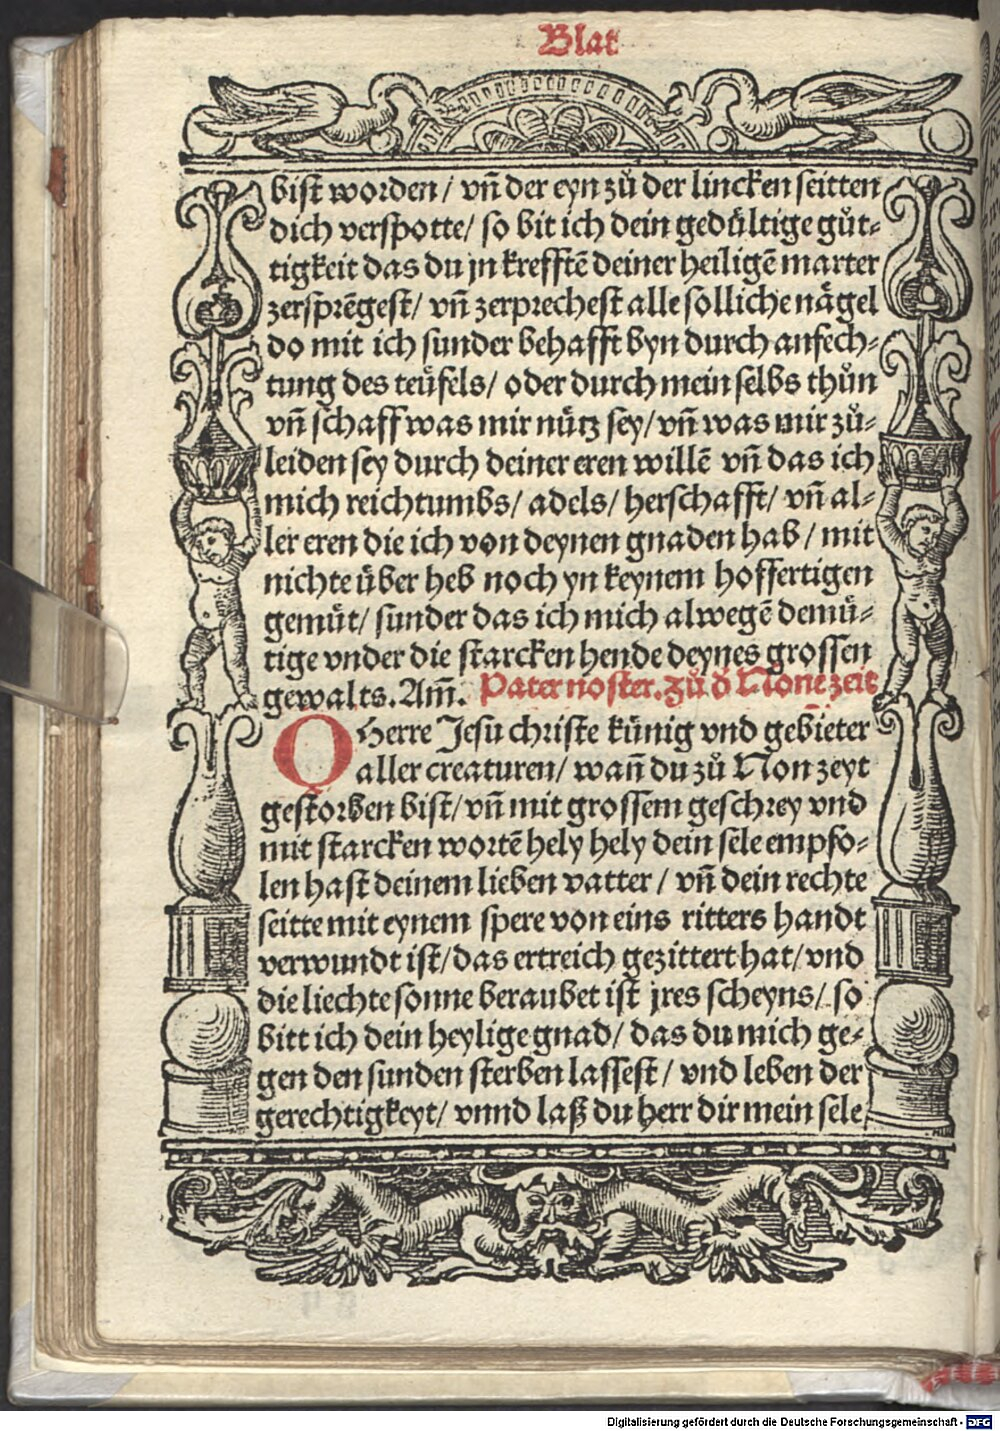 Blat
bist worden/ vñ der eyn zů der lincken seitten
dich verspotte/ so bit ich dein gedůltige gůt⸗
tigkeit das du jn krefftē deiner heiligē marter
zersprēgest/ vñ zerprechest alle solliche någel
do mit ich sunder behafft byn durch anfech⸗
tung des teüfels/ oder durch mein selbs thůn
vñ schaff was mir nütz sey/ vñ was mir zů⸗
leiden sey durch deiner eren willē vñ das ich
mich reichtumbs/ adels/ herschafft/ vñ al⸗
ler eren die ich von deynen gnaden hab/ mit
nichte über heb noch yn keynem hoffertigen
gemüt/ sunder das ich mich alwegē demü⸗
tige vnder die starcken hende deynes grossen
gewalts. Am̃. Pater noster. zů d None zeit
O Herre Jesu christe künig vnd gebieter
aller creaturen/ wañ du zů Non zeyt
gestorben bist/ vñ mit grossem geschrey vnd
mit starcken wortē hely hely dein sele empfo⸗
len hast deinem lieben vatter/ vñ dein rechte
seitte mit eynem spere von eins ritters handt
verwundt ist/ das ertreich gezittert hat/ vnd
die liechte sonne beraubet ist jres scheyns/ so
bitt ich dein heylige gnad/ das du mich ge⸗
gen den sunden sterben lassest/ vnd leben der
gerechtigkeyt/ vnnd laß du herr dir mein sele
Digitalisierung gefördert durch die Deutsche Forschungsgemeinschaft - DFG